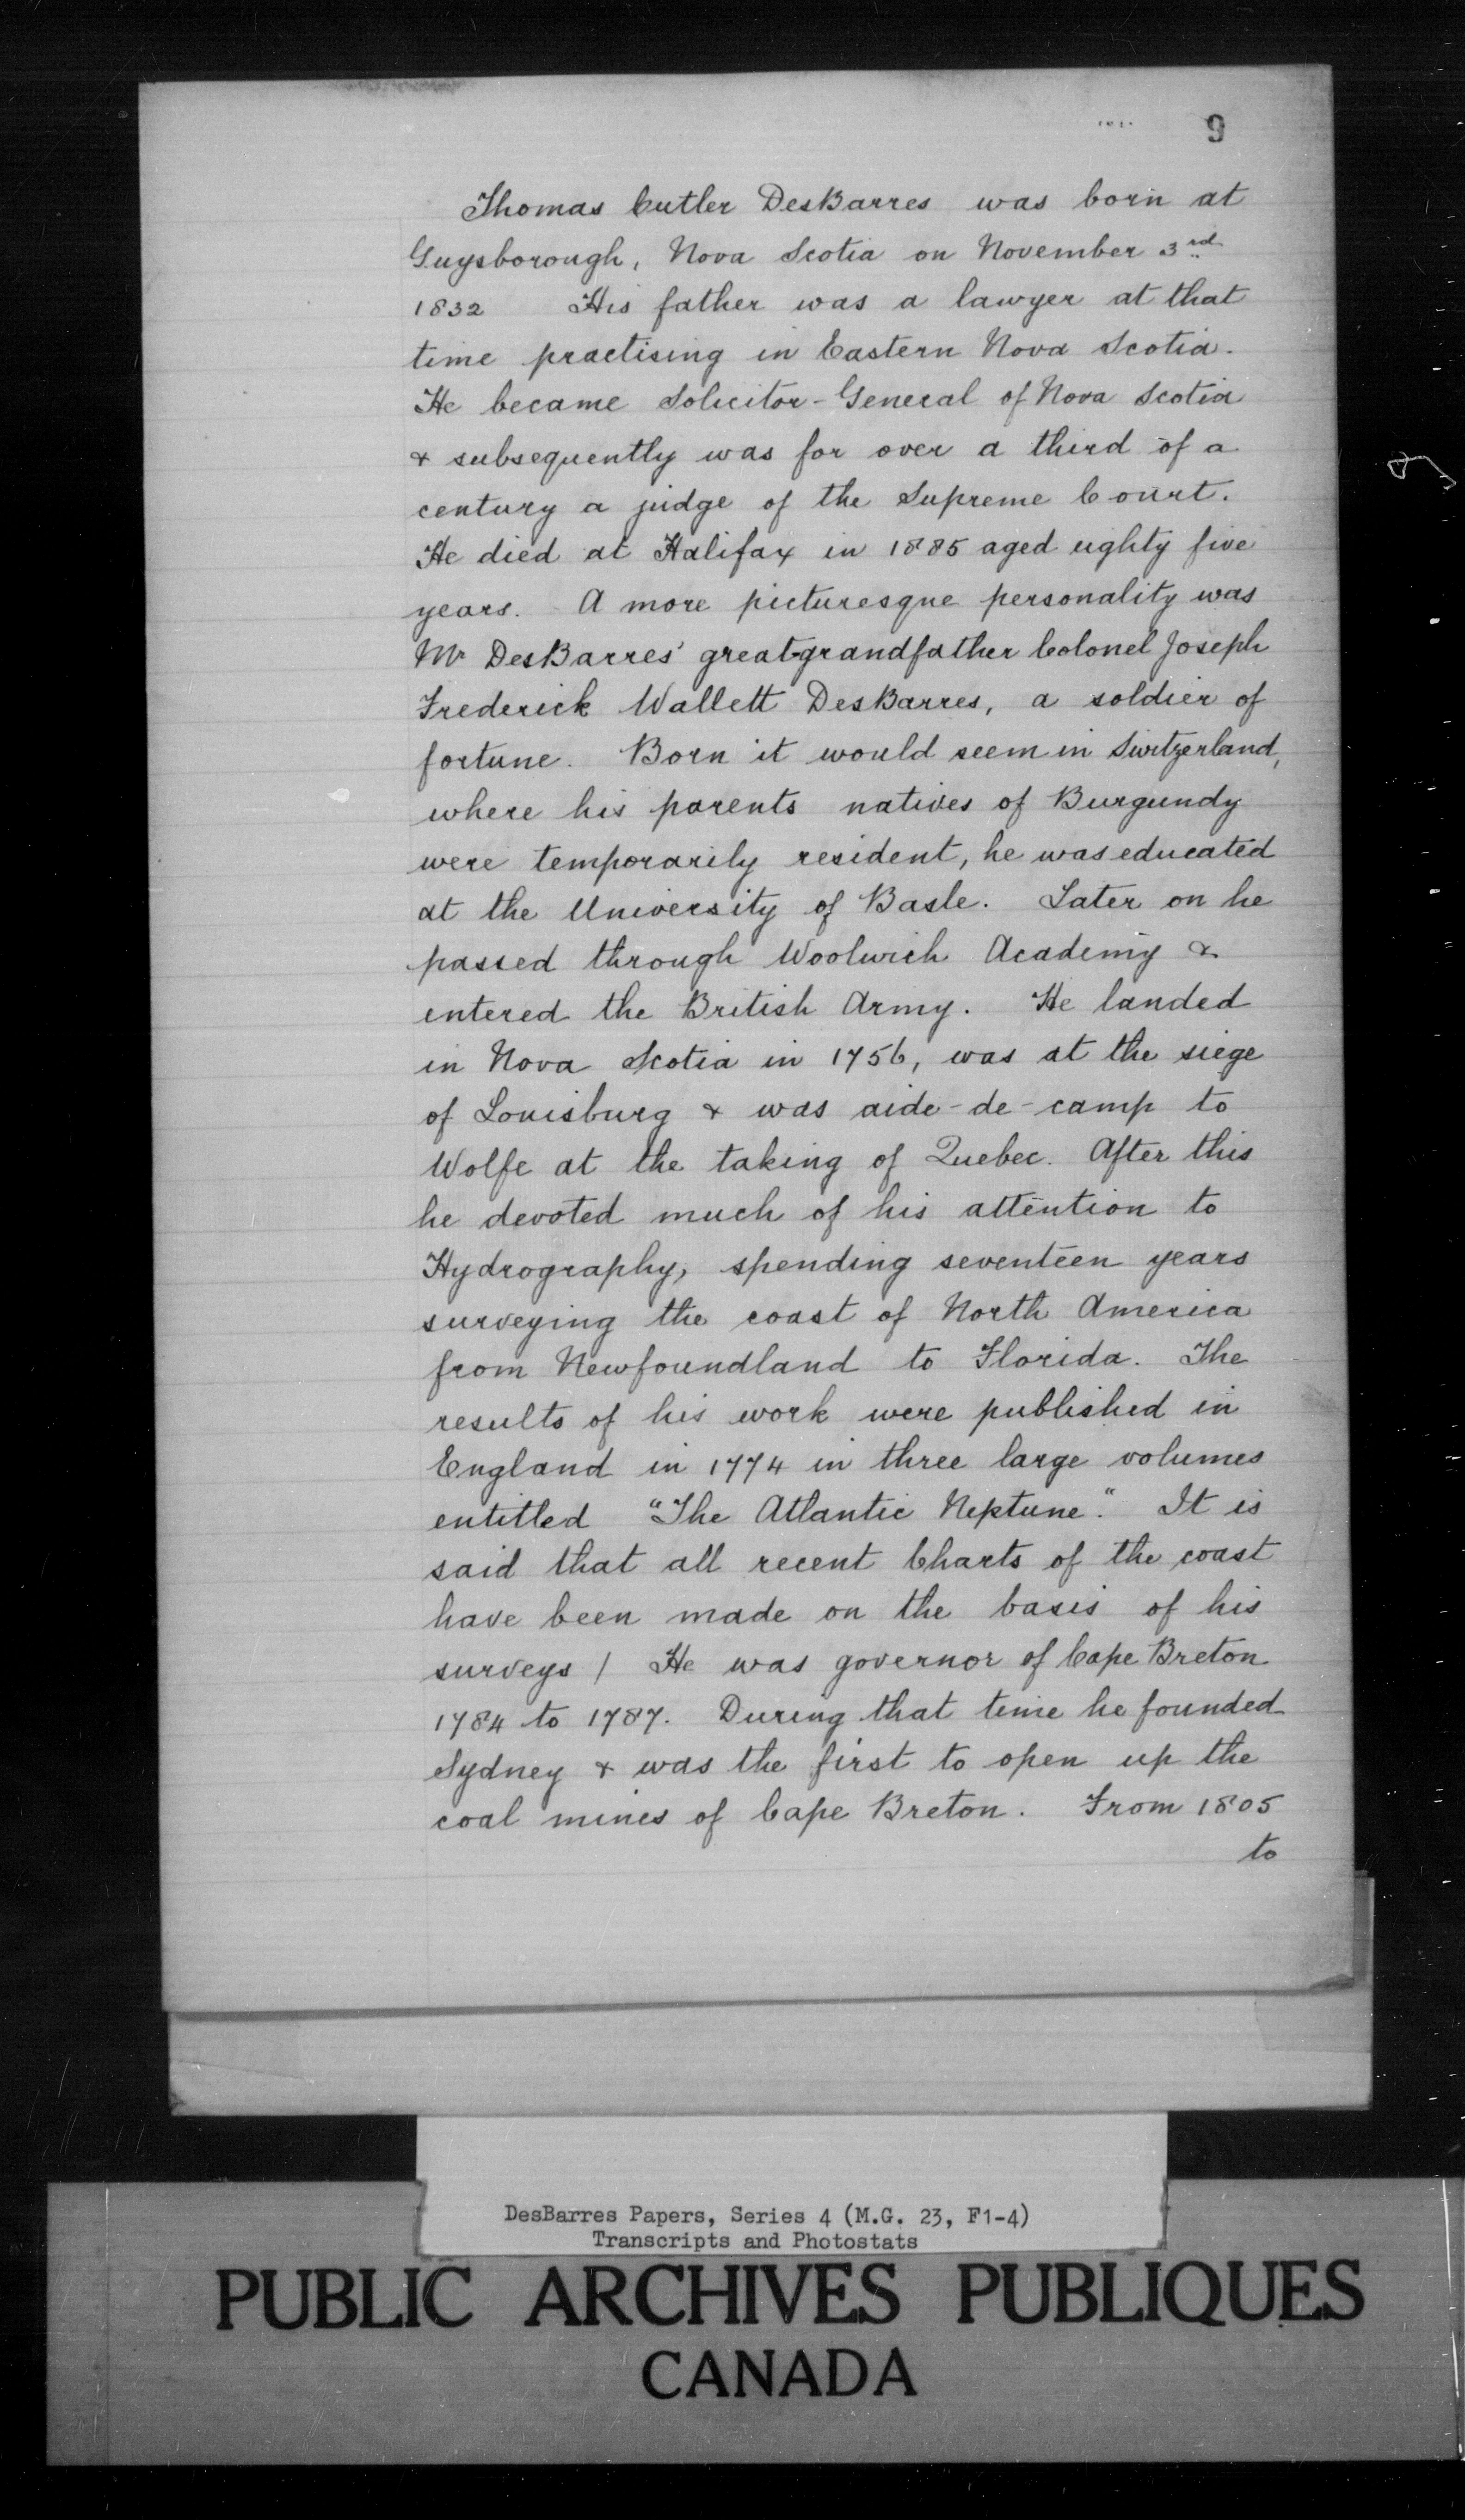 9
Thomas Cutler DesBarres was born at
Guysborough, Nova Scotia on November 3rd
1832 His father was a lawyer at that
time practising in Eastern Nova Scotia.
He became Solicitor-General of Nova Scotia
& subsequently was for over a third of a
century a judge of the Supreme Court.
He died at Halifax in 1885 aged eighty five
years. A more picturesque personality was
Mr DesBarres' great-grandfather Colonel Joseph
Frederick Wallett DesBarres, a soldier of
fortune. Born it would seem in Switzerland,
where his parents natives of Burgundy
were temporarily resident, he was educated
at the University of Basle. Later on he
passed through Woolwich Academy &
entered the British Army. He landed
in Nova Scotia in 1756, was at the siege
of Louisburg & was aide-de-camp to
Wolfe at the taking of Quebec. After this
he devoted much of his attention to
Hydrography, spending seventeen years
surveying the coast of North America
from Newfoundland to Florida. The
results of his work were published in
England in 1774 in three large volumes
entitled "The Atlantic Neptune". It is
said that all recent Charts of the coast
have been made on the basis of his
surveys / He was governor of Cape Breton
1784 to 1787. During that time he founded
Sydney & was the first to open up the
coal mines of Cape Breton. From 1805
to
DesBarres Papers, Series 4 (M.G. 23, F1-4)
Transcripts and Photostats
PUBLIC ARCHIVES PUBLIQUES
CANADA